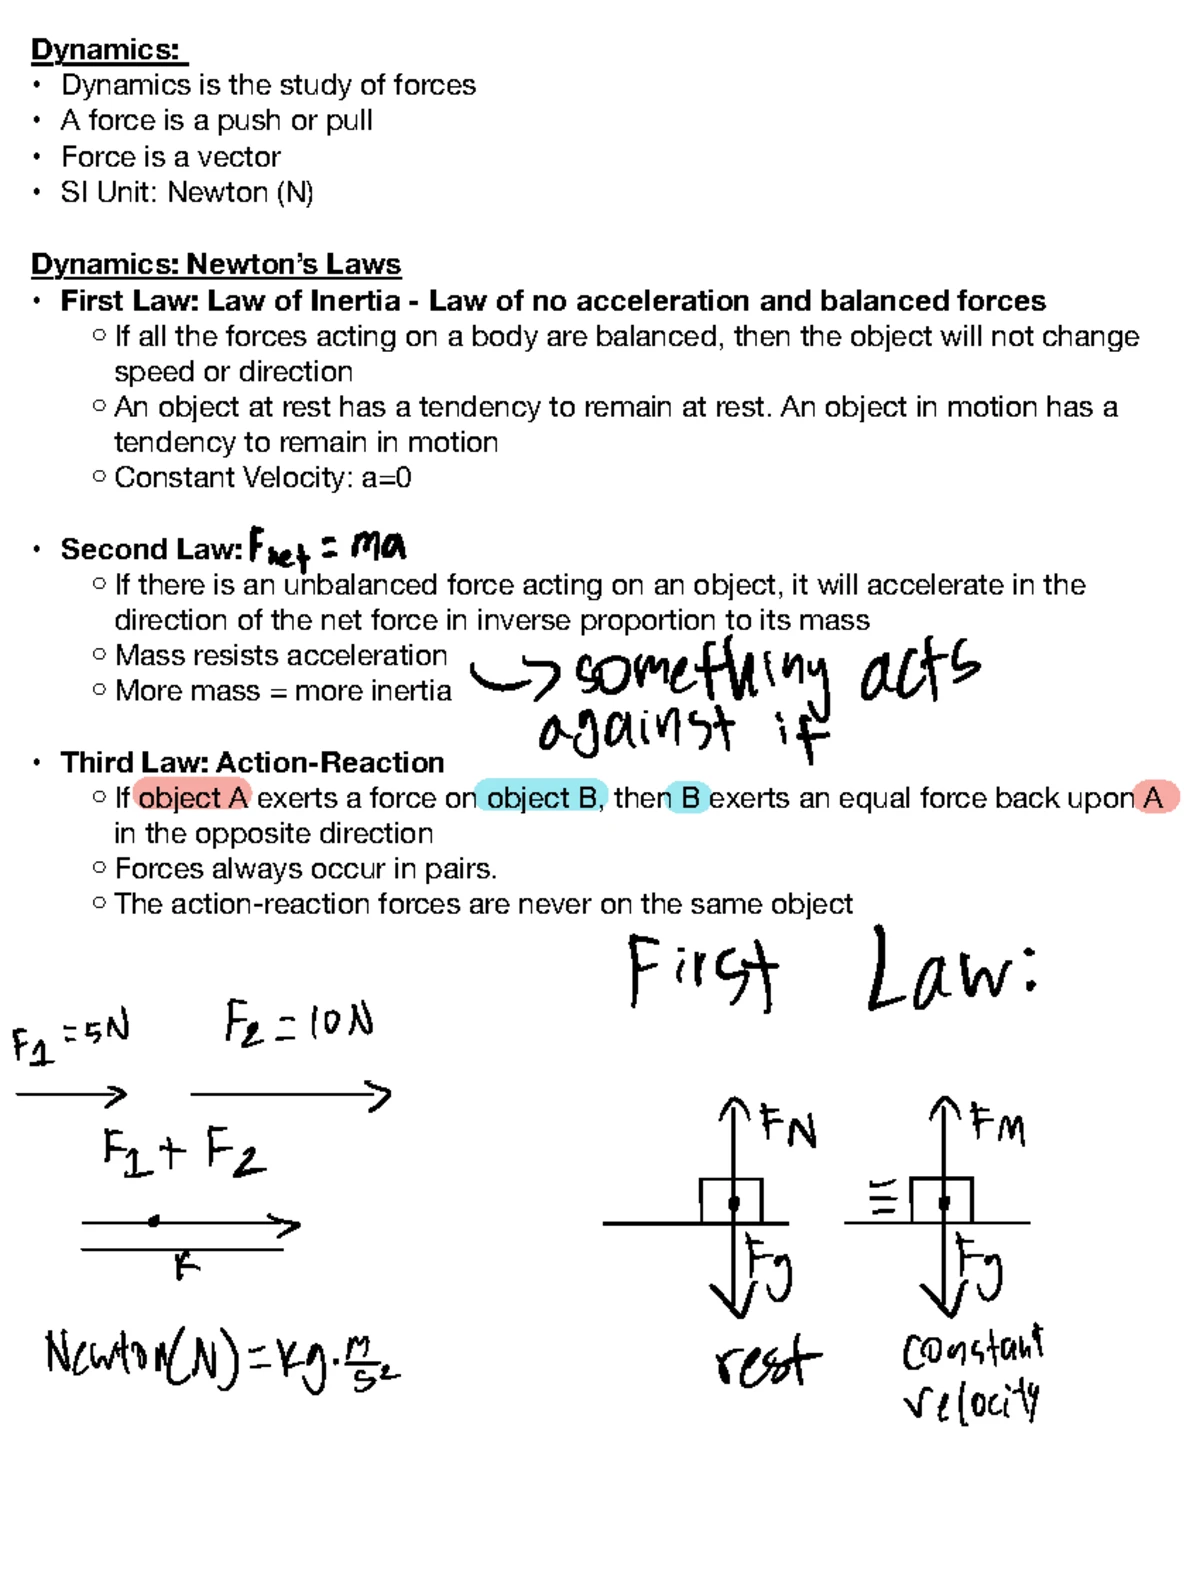 Dynamics:
• Dynamics is the study of forces
• A force is a push or pull
• Force is a vector
• SI Unit: Newton (N)
Dynamics: Newton's Laws
• First Law: Law of Inertia - Law of no acceleration and balanced forces
○ If all the forces acting on a body are balanced, then the object will not change
speed or direction
○ An object at rest has a tendency to remain at rest. An object in motion has a
tendency to remain in motion
○ Constant Velocity: a=0
• Second Law: Fnet = ma
○ If there is an unbalanced force acting on an object, it will accelerate in the
direction of the net force in inverse proportion to its mass
○ Mass resists acceleration
○ More mass = more inertia
→ something acts
against if
• Third Law: Action-Reaction
○ If object A exerts a force on object B, then B exerts an equal force back upon A
in the opposite direction
○ Forces always occur in pairs.
○ The action-reaction forces are never on the same object
First Law:
F1 = 5N
F2 = 10N
F1 + F2
Newton(N) = kg·m/s2
FN
Fg
rest
FM
Fg
constant
velocity